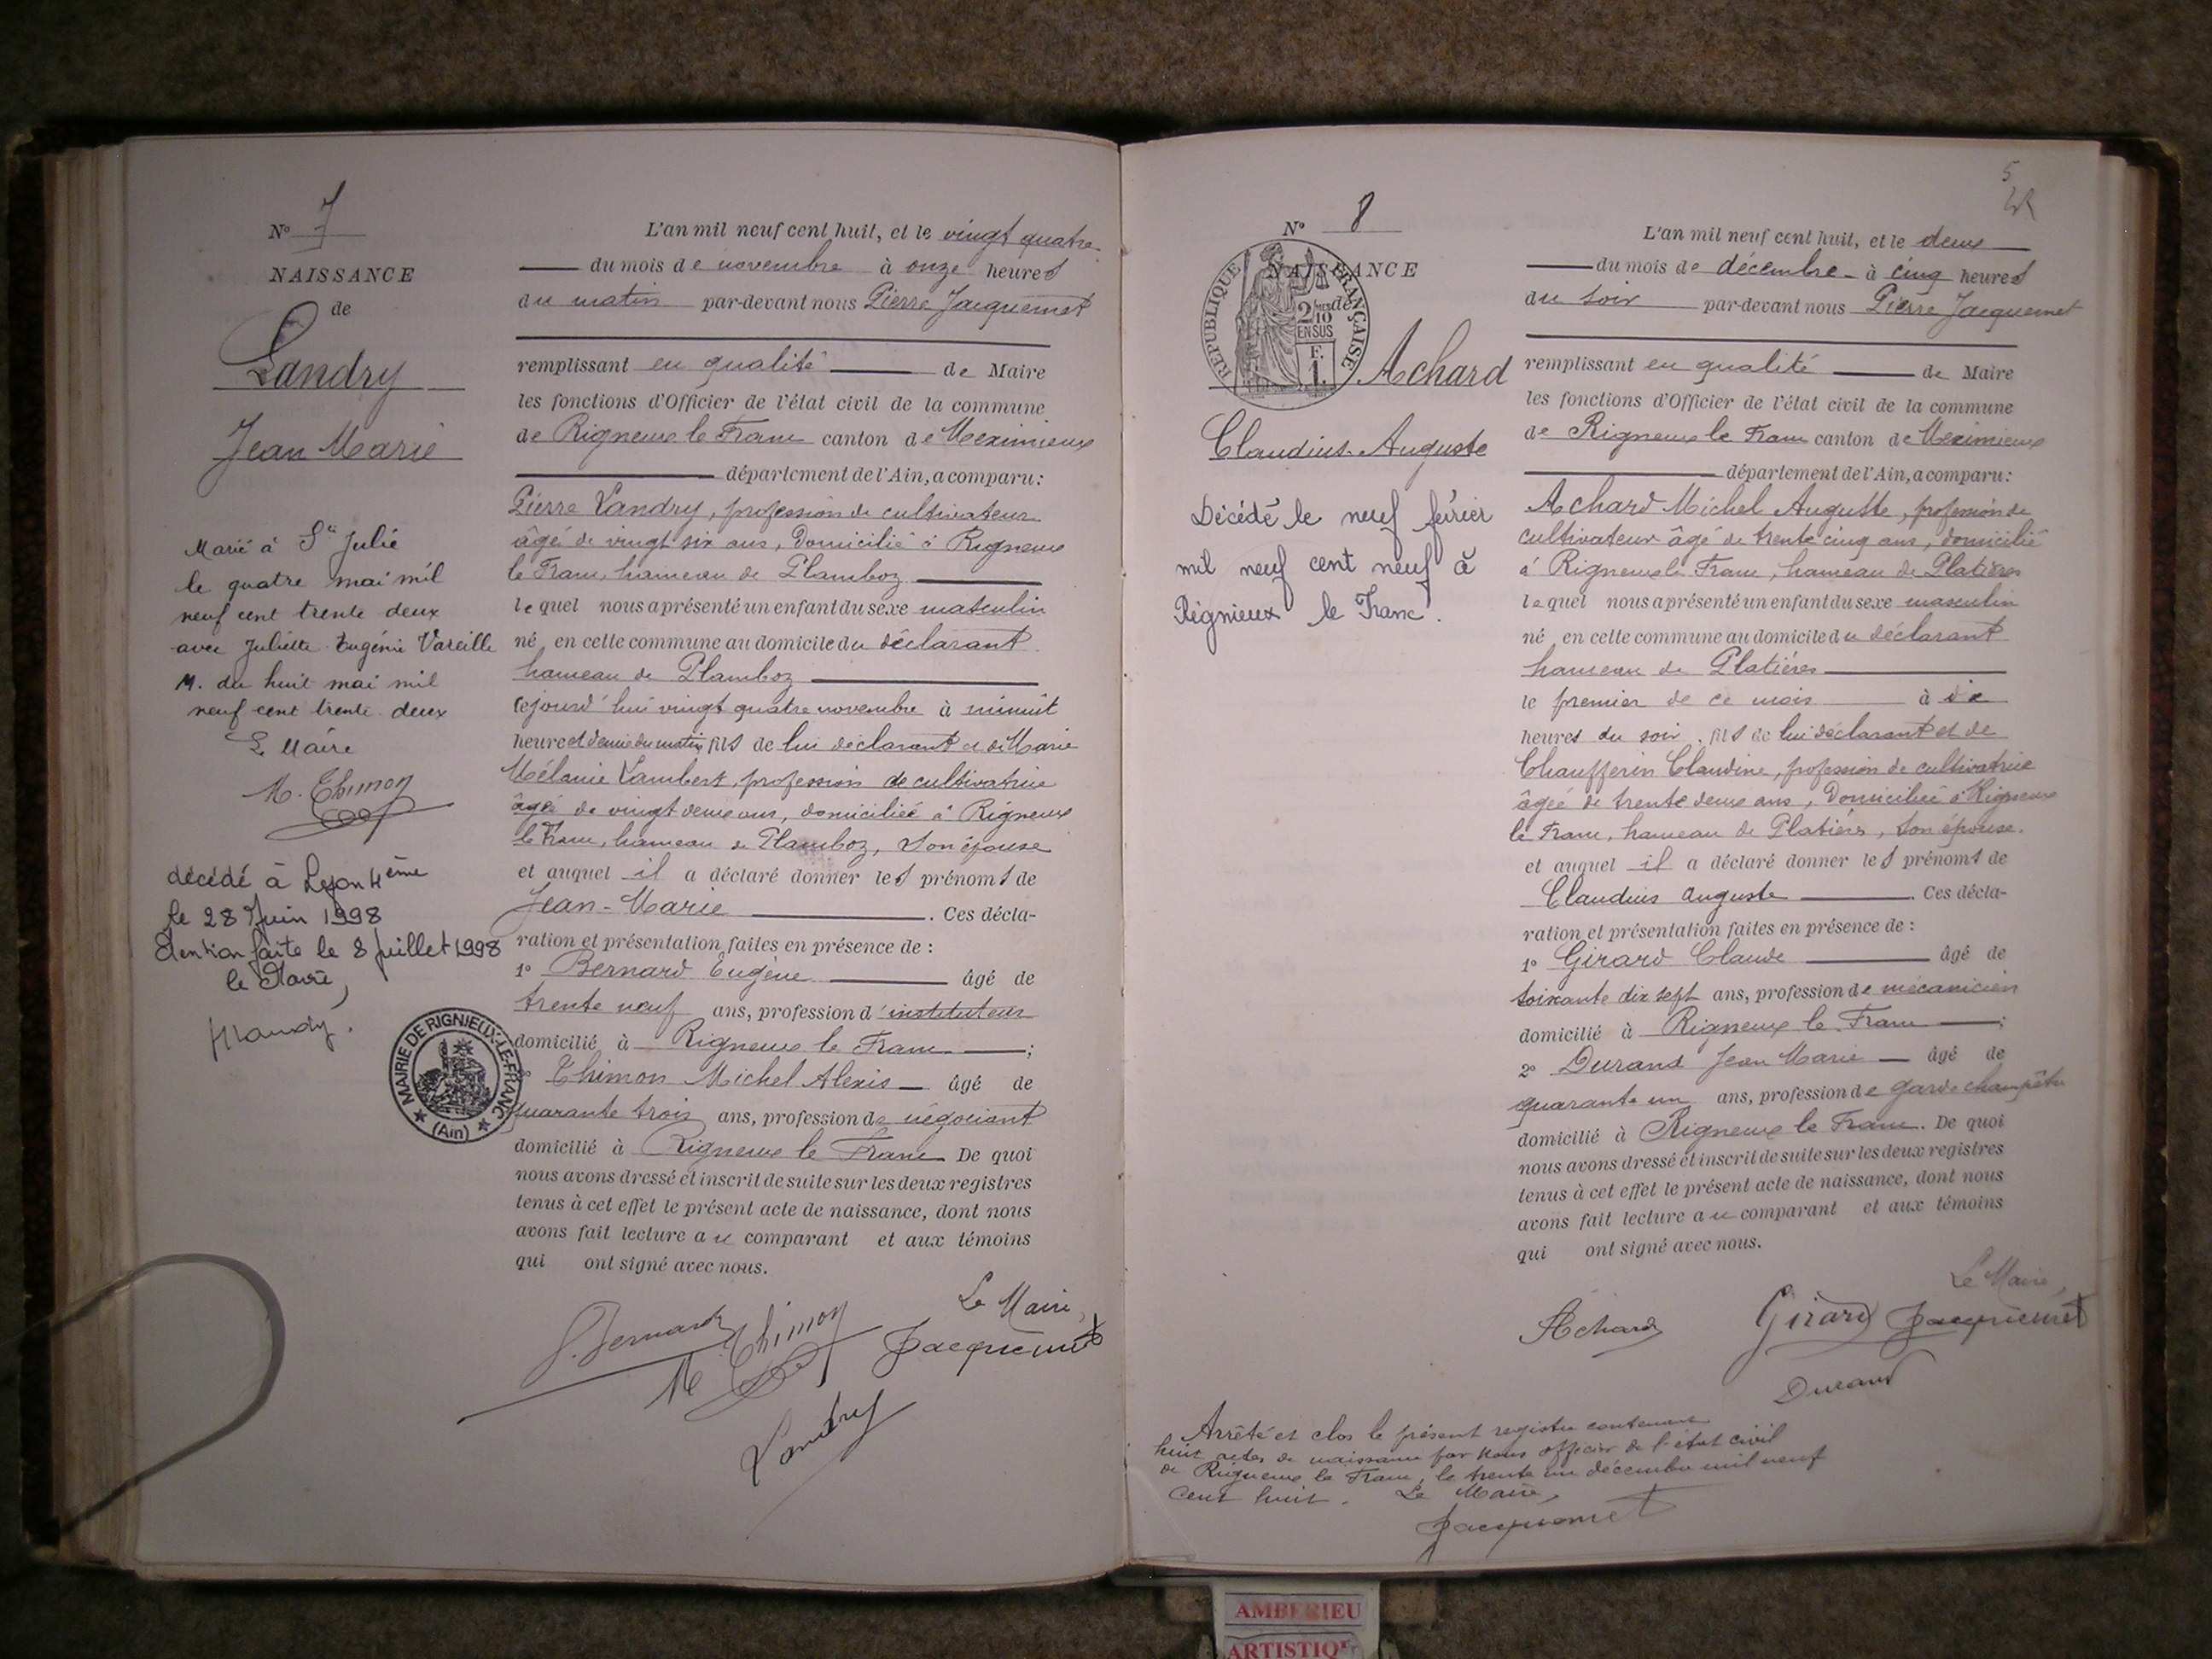 N° 7
NAISSANCE
de
Landry
Jean Marie
Marié à Ste Julie
le quatre mai mil
neuf cent trente deux
avec Juliette Eugénie Vareille
M. du huit mai mil
neuf cent trente deux
Le Maire
M. Thimon
décédé à Lyon 4ème
le 28 Juin 1998
Mention faite le 8 juillet 1998
le Maire,
MAIRIE DE RIGNIEUX-LE-FRANC
(Ain)
L'an mil neuf cent huit, et le vingt quatre
du mois de novembre à onze heures
du matin par-devant nous Pierre Jacquemet
remplissant en qualité de Maire
les fonctions d'Officier de l'état civil de la commune
de Rigneux le Franc canton de Meximieux
département de l'Ain, a comparu :
Pierre Landry, profession de cultivateur
âgé de vingt six ans, domicilié à Rigneux
le Franc, hameau de Plamboz
lequel nous a présenté un enfant du sexe masculin
né, en cette commune au domicile du déclarant
hameau de Plamboz
cejourd'hui vingt quatre novembre à minuit
heure et demie du matin, fils de lui déclarant et de Marie
Mélanie Lambert, profession de cultivatrice
âgée de vingt deux ans, domiciliée à Rigneux
le Franc, hameau de Plamboz, son épouse
et auquel il a déclaré donner les prénoms de
Jean-Marie . Ces décla-
ration et présentation faites en présence de :
1° Bernard Eugène âgé de
trente neuf ans, profession d'instituteur
domicilié à Rigneux le Franc ;
2° Thimon Michel Alexis âgé de
quarante trois ans, profession de négociant
domicilié à Rigneux le Franc De quoi
nous avons dressé et inscrit de suite sur les deux registres
tenus à cet effet le présent acte de naissance, dont nous
avons fait lecture au comparant et aux témoins
qui ont signé avec nous.
Le Maire,
Bernard M. Thimon Jacquemet
Landry
5
N° 8
NAISSANCE
de
RÉPUBLIQUE FRANÇAISE
2/10
EN SUS
F.
1.
Achard
Claudius-Auguste
Décédé le neuf février
mil neuf cent neuf à
Rignieux le Franc.
L'an mil neuf cent huit, et le deux
du mois de décembre à cinq heures
du soir par-devant nous Pierre Jacquemet
remplissant en qualité de Maire
les fonctions d'Officier de l'état civil de la commune
de Rigneux le Franc canton de Meximieux
département de l'Ain, a comparu :
Achard Michel Auguste, profession de
cultivateur âgé de trente cinq ans, domicilié
à Rigneux le Franc, hameau de Platières
lequel nous a présenté un enfant du sexe masculin
né, en cette commune au domicile du déclarant
hameau de Platières
le premier de ce mois à
heures du soir, fils de lui déclarant et de
Chaufferin Claudine, profession de cultivatrice
âgée de trente deux ans, domiciliée à Rigneux
le Franc, hameau de Platières, son épouse.
et auquel il a déclaré donner les prénoms de
Claudius Auguste . Ces décla-
ration et présentation faites en présence de :
1° Girard Claude âgé de
soixante dix sept ans, profession de mécanicien
domicilié à Rigneux le Franc ;
2° Durand Jean Marie âgé de
quarante un ans, profession de garde champêtre
domicilié à Rigneux le Franc. De quoi
nous avons dressé et inscrit de suite sur les deux registres
tenus à cet effet le présent acte de naissance, dont nous
avons fait lecture au comparant et aux témoins
qui ont signé avec nous.
Le Maire,
Achard Girard Jacquemet
Durand
Arrêté et clos le présent registre contenant
huit actes de naissance par nous officier de l'état civil
de Rigneux le Franc, le trente un décembre mil neuf
cent huit. Le Maire,
Jacquemet
AMBERIEU
ARTISTIQ